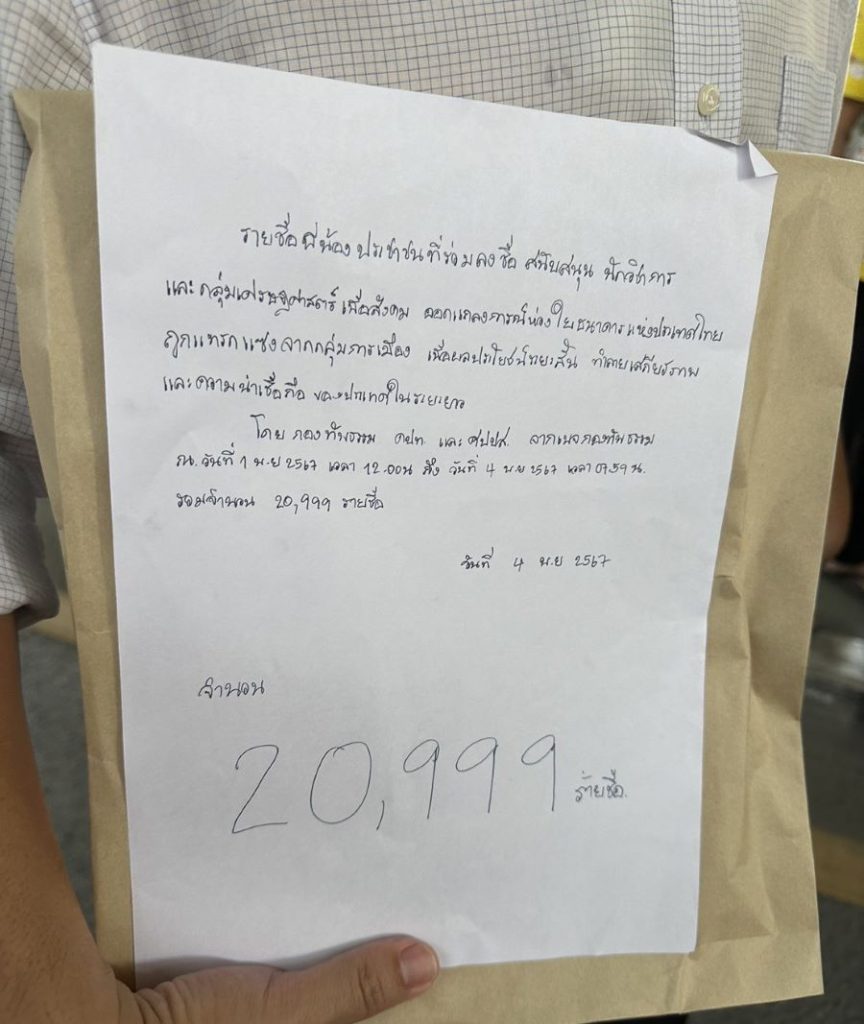 รายชื่อพี่น้องประชาชนที่ร่วมลงชื่อ สนับสนุน นักวิชาการ
และกลุ่มเศรษฐศาสตร์เพื่อสังคม ออกแถลงการณ์ห่วงใยธนาคารแห่งประเทศไทย
ถูกแทรกแซงจากกลุ่มการเมือง เพื่อผลประโยชน์ระยะสั้น ทำลายเสถียรภาพ
และความน่าเชื่อถือ ของประเทศในระยะยาว
โดย กองทัพธรรม คปท และ ศปปส. จากเพจกองทัพธรรม
ณ. วันที่ 1 พ.ย 2567 เวลา 12.00น ถึง วันที่ 4 พ.ย 2567 เวลา 07.59 น.
รวมจำนวน 20,999 รายชื่อ
วันที่ 4 พ.ย 2567
จำนวน
20,999 รายชื่อ.